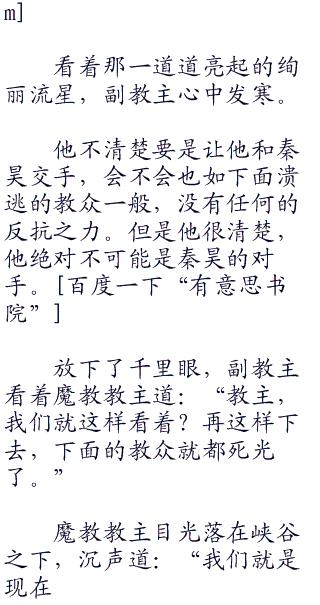 m]
看着那一道道亮起的绚
丽流星，副教主心中发寒。
他不清楚要是让他和秦
昊交手，会不会也如下面溃
逃的教众一般，没有任何的
反抗之力。但是他很清楚，
他绝对不可能是秦昊的对
手。[百度一下“有意思书
院”]
放下了千里眼，副教主
看着魔教教主道：“教主，
我们就这样看着？再这样下
去，下面的教众就都死光
了。”
魔教教主目光落在峡谷
之下，沉声道：“我们就是
现在